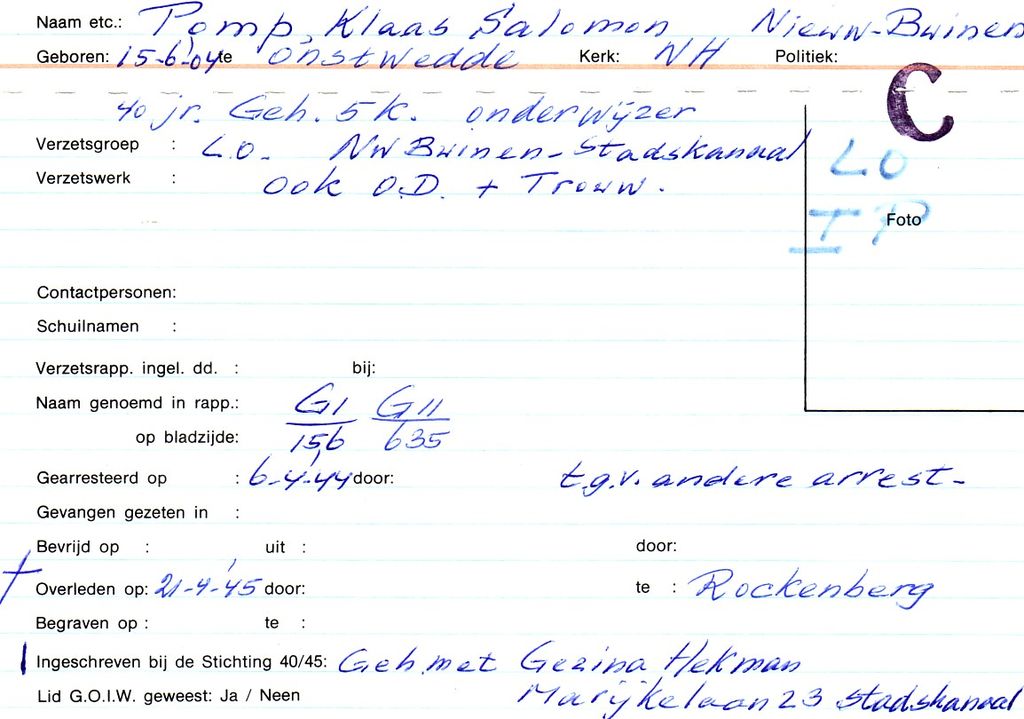 Naam etc.: Pomp, Klaas Salomon Nieuw-Buinen
Geboren: 15-6-04 te Onstwedde Kerk: NH Politiek:
C
40 jr. Geh. 5 k. onderwijzer
Verzetsgroep : L.O. NwBuinen-Stadskanaal
LO
Verzetswerk : ook O.D. + Trouw.
I P
Foto
Contactpersonen:
Schuilnamen :
Verzetsrapp. ingel. dd. : bij:
Naam genoemd in rapp.: GI GII
op bladzijde: 156 635
Gearresteerd op : 6-4-'44 door: t.g.v. andere arrest-
Gevangen gezeten in :
Bevrijd op : uit : door:
† Overleden op: 21-4-'45 door: te : Rockenberg
Begraven op : te :
Ingeschreven bij de Stichting 40/45: Geh. met Gezina Hekman
Lid G.O.I.W. geweest: Ja / Neen Marijkelaan 23 Stadskanaal